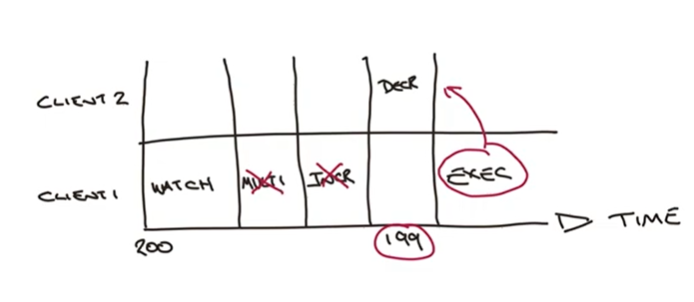 CLIENT 2
DECR
CLIENT 1
WATCH
MULTI
INCR
EXEC
200
199
TIME